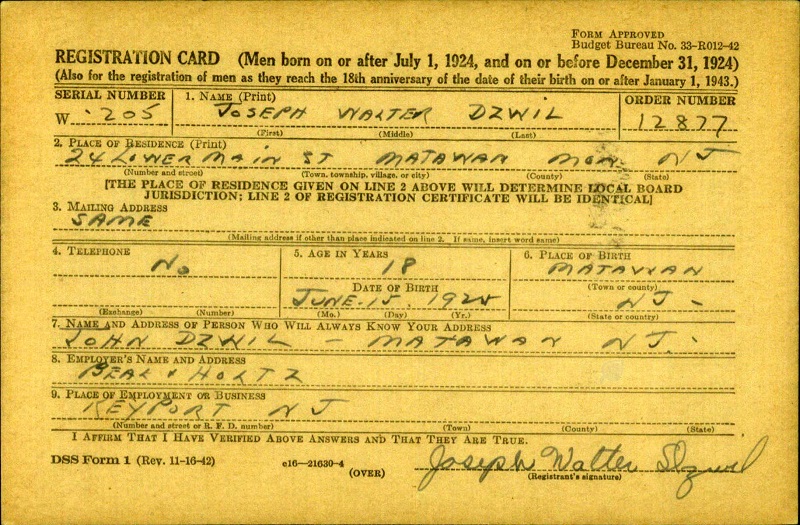 FORM APPROVED
Budget Bureau No. 33-R012-42
REGISTRATION CARD (Men born on or after July 1, 1924, and on or before December 31, 1924)
(Also for the registration of men as they reach the 18th anniversary of the date of their birth on or after January 1, 1943.)
SERIAL NUMBER 1. NAME (Print) ORDER NUMBER
W 205 JOSEPH WALTER DZWIL 12877
(First) (Middle) (Last)
2. PLACE OF RESIDENCE (Print)
24 LOWER MAIN ST MATAWAN MON. NJ
(Number and street) (Town, township, village, or city) (County) (State)
[THE PLACE OF RESIDENCE GIVEN ON LINE 2 ABOVE WILL DETERMINE LOCAL BOARD
JURISDICTION; LINE 2 OF REGISTRATION CERTIFICATE WILL BE IDENTICAL]
3. MAILING ADDRESS
SAME
(Mailing address if other than place indicated on line 2. If same, insert word same)
4. TELEPHONE 5. AGE IN YEARS 6. PLACE OF BIRTH
No 18 MATAWAN
DATE OF BIRTH (Town or county)
JUNE. 15. 1925 NJ -
(Exchange) (Number) (Mo.) (Day) (Yr.) (State or country)
7. NAME AND ADDRESS OF PERSON WHO WILL ALWAYS KNOW YOUR ADDRESS
JOHN DZWIL - MATAWAN NJ.
8. EMPLOYER'S NAME AND ADDRESS
BEAL & HOLTZ
9. PLACE OF EMPLOYMENT OR BUSINESS
KEYPORT NJ
(Number and street or R. F. D. number) (Town) (County) (State)
I AFFIRM THAT I HAVE VERIFIED ABOVE ANSWERS AND THAT THEY ARE TRUE.
DSS Form 1 (Rev. 11-16-42) c16—21630-4 Joseph Walter Dzwil
(OVER) (Registrant's signature)